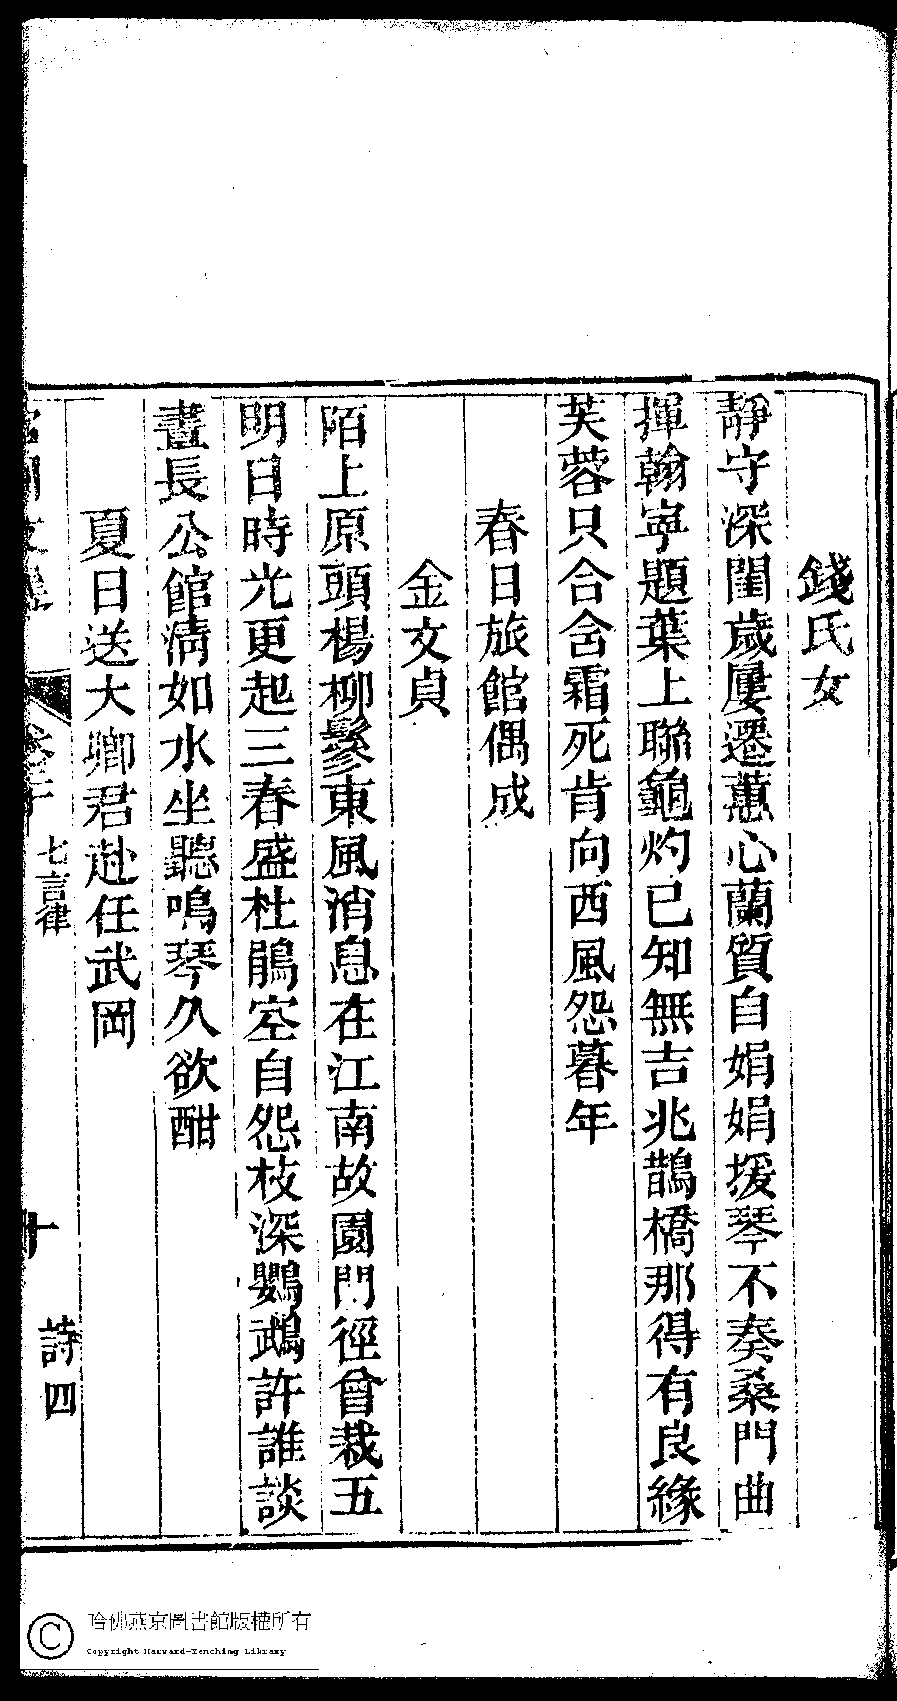 錢氏女
靜守深閨歲屢遷蕙心蘭質自娟娟援琴不奏桑門曲
揮翰寧題葉上聯龜灼已知無吉兆鵲橋那得有良緣
芙蓉只合含霜死肯向西風怨暮年
春日旅館偶成
金文貞
陌上原頭楊柳鬖東風消息在江南故園門徑曾栽五
明日時光更起三春盛杜鵑空自怨枝深鸚鵡許誰談
晝長公館淸如水坐聽鳴琴久欲酣
夏日送大卿君赴任武岡
七言律
十
詩四
哈佛燕京圖書館版權所有
Copyright Harvard-Yenching Library